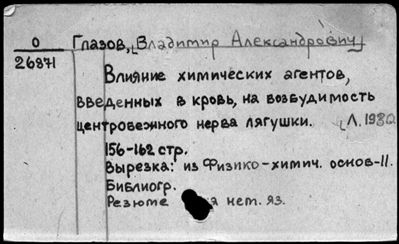 О Глазов, [Владимир Александрович]
26871
Влияние химических агентов,
введенных в кровь, на возбудимость
центробежного нерва лягушки. [Л. 1930
156-162 стр.
Вырезка: из Физико-химич. основ-II.
Библиогр.
Резюме нем. яз.